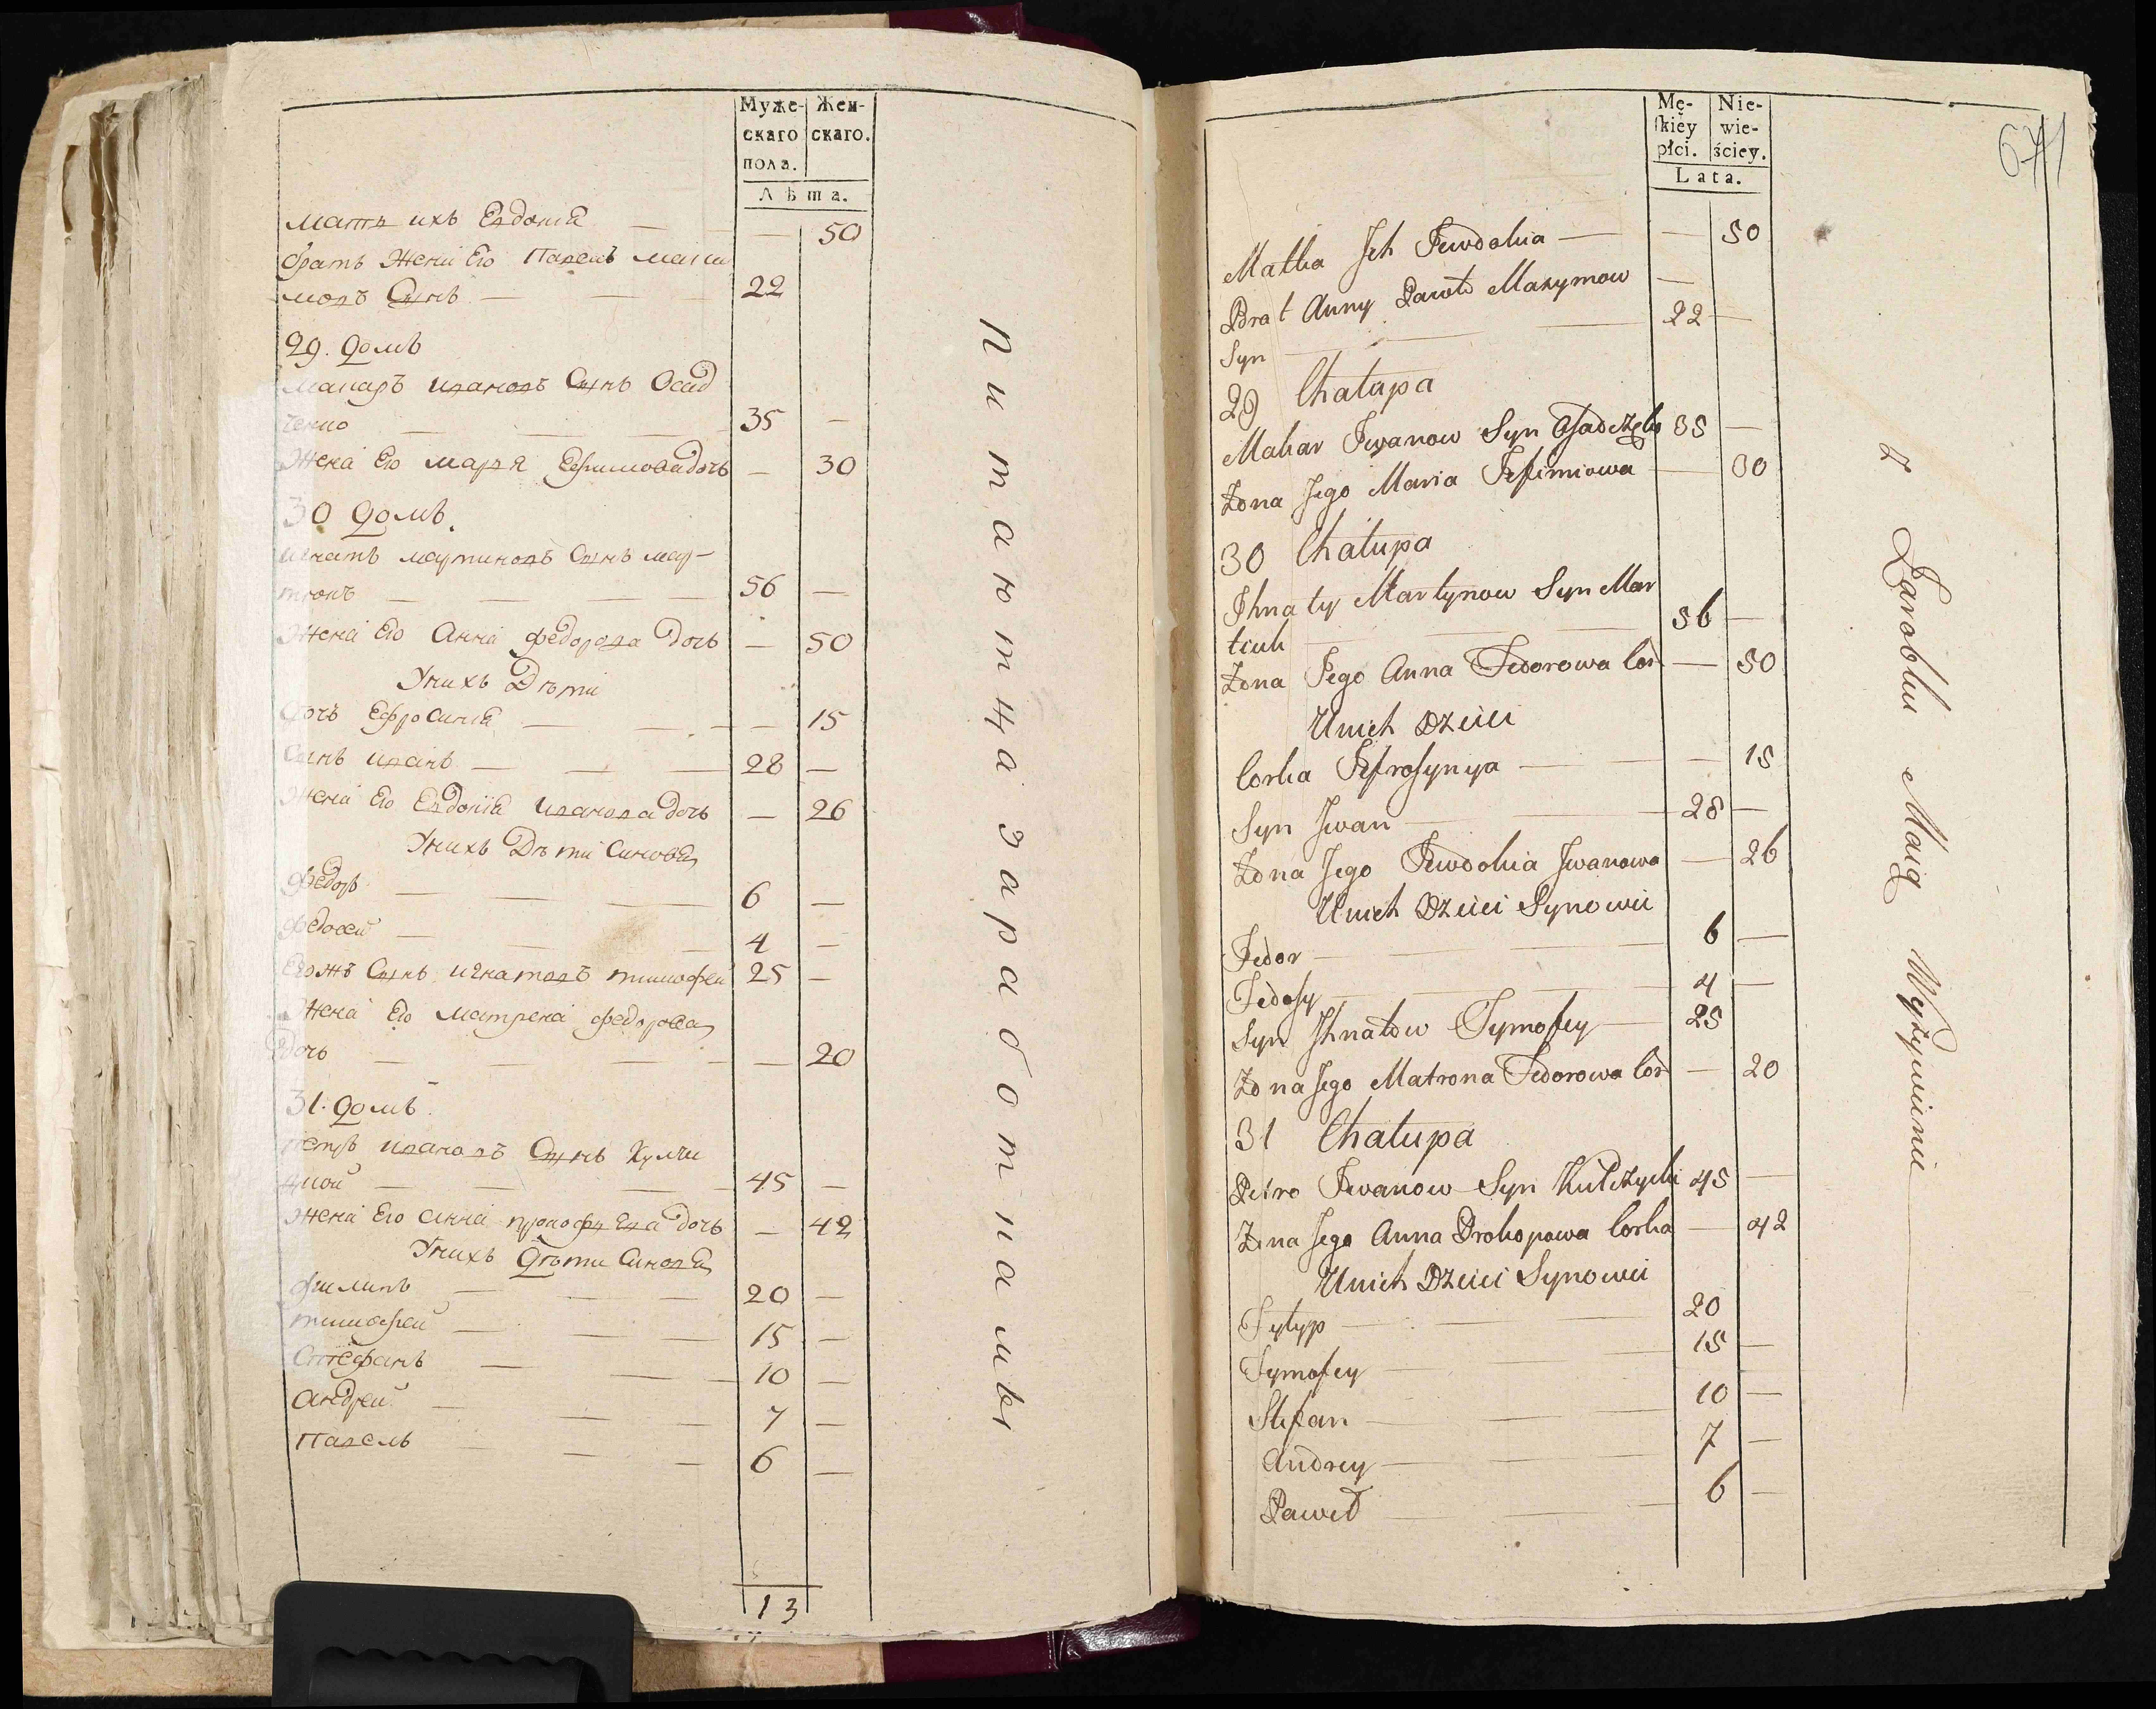 Муже-
скаго
пола.
Жен-
скаго.
Лѣта.
мать ихъ Евдокиѣ — — 50
братъ жени Его Павелъ макси
мовъ Сынъ — — 22
29. домъ
макаръ ивановъ Сынъ Осад
ченко — — — 35 —
Жена Его марья Ефимова дочь — 30
30 домъ.
игнатъ мартиновъ Сынъ мар-
тюкъ — — — 56 —
жена Его Анна федорова дочь — 50
Унихъ Дѣти
дочъ Ефросиниѣ — — — 15
Сынъ иванъ — — — 28 —
жена Его Евдокиѣ иванова дочь — 26
Унихъ Дѣти Синовья
федоръ — — — 6 —
федосей — — — 4 —
Егожъ Сынъ игнатовъ тимофей 25 —
Жена Его матрена федорова
дочь — — — — 20
31. домъ
петръ ивановъ Сынъ Кулчи
цкой — — — 45 —
жена Его анна прокофьева дочь — 42
Унихъ дѣти Синовья
филипъ — — — 20 —
тимофей — — — 15 —
Стефанъ — — 10 —
андрей — — — 7 —
Павелъ — — — 6 —
13
питаютца заработками
Mę-
skiéy
płci.
Nie-
wie-
ściey.
Lata.
671
Matka Jch Jewdokia — — 50
Brat Anny Pawło Maxymow —
Syn — — 22 —
29 Chałupa
Makar Jwanow Syn Osadczęko 35 —
Żona Jego Maria Jefimiowa — 30
30 Chałupa
Jhnaty Martynow Syn Mar
tiuk — — 56 —
Żona Jego Anna Fedorowa Cor — 50
Unich Dzieci
Corka Jefrosynya — — — 15
Syn Jwan — — 28 —
Żona Jego Jewdokia Jwanowa — 26
Unich Dzieci Synowie
Fedor — — — 6 —
Fedosy — — — 4 —
Syn Jhnatow Tymofey — 25
Żona Jego Matrona Fedorowa Cor — 20
31 Chałupa
Petro Jwanow Syn Kulczycki 45 —
Żona Jego Anna Prokopowa Corka — 42
Unich Dzieci Synowie
Fylyp — — — 20
Tymofey — — — 15 —
Stefan — — — 10 —
Andrey — — — 7 —
Paweł — — — 6 —
z Zarobku Maią Wyżywienie